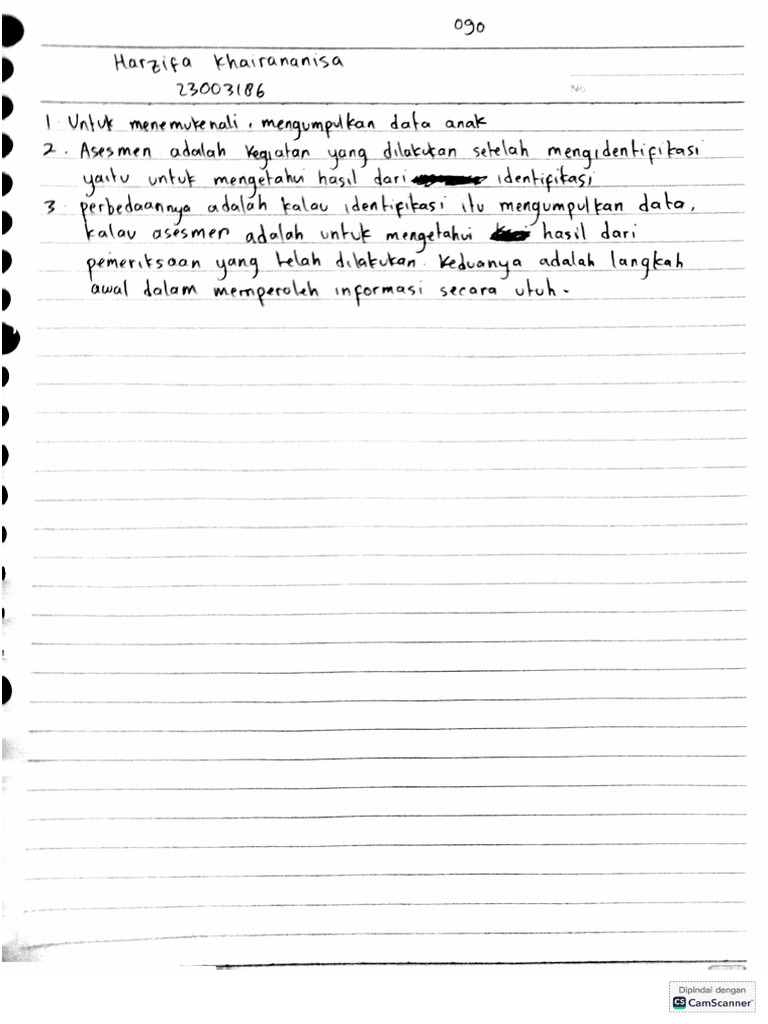 090
Harzifa Khairananisa
23003186
No :
1. Untuk menemukenali, mengumpulkan data anak
2. Asesmen adalah kegiatan yang dilakukan setelah mengidentifikasi
yaitu untuk mengetahui hasil dari identifikasi
3. perbedaannya adalah kalau identifikasi itu mengumpulkan data,
kalau asesmen adalah untuk mengetahui hasil dari
pemeriksaan yang telah dilakukan. Keduanya adalah langkah
awal dalam memperoleh informasi secara utuh.
Dipindai dengan
CS CamScanner